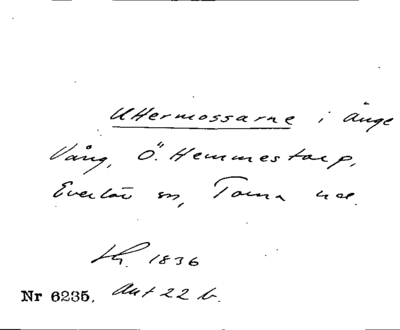 Uttermossarne i Änge
Vång, Ö. Hemmestorp,
Everlöv sn, Torna hd.
Lh. 1836
Nr 6235. Akt 22 b.